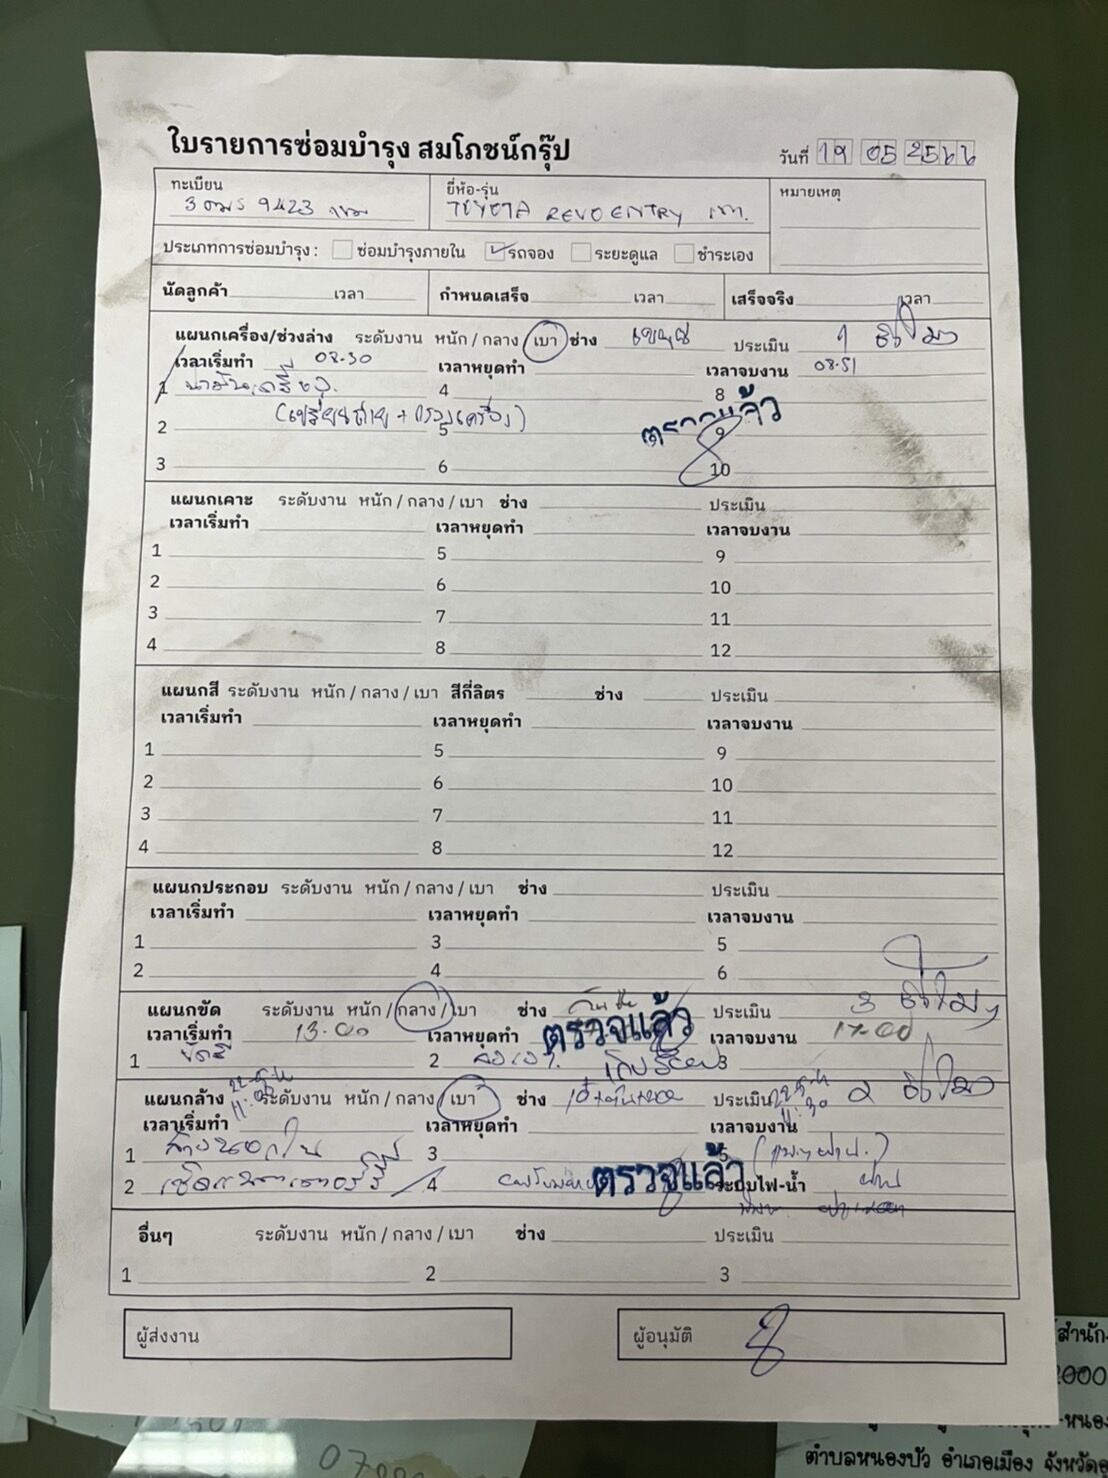 ใบรายการซ่อมบำรุง สมโภชน์กรุ๊ป
วันที่ 19 05 2566
ทะเบียน ยี่ห้อ-รุ่น หมายเหตุ
3 ฒร 9423 กทม TOYOTA REVO ENTRY
ประเภทการซ่อมบำรุง : ซ่อมบำรุงภายใน รถจอง ระยะดูแล ชำระเอง
นัดลูกค้า เวลา กำหนดเสร็จ เวลา เสร็จจริง เวลา
แผนกเครื่อง/ช่วงล่าง ระดับงาน หนัก / กลาง / เบา ช่าง ประเมิน 1 ชั่วโมง
เวลาเริ่มทำ 08.30 เวลาหยุดทำ เวลาจบงาน 08.51
1 น้ำมันเครื่อง 4 8
2 (เปลี่ยนถ่าย + กรองเครื่อง) 5 ตรวจแล้ว 9
3 6 10
แผนกเคาะ ระดับงาน หนัก / กลาง / เบา ช่าง ประเมิน
เวลาเริ่มทำ เวลาหยุดทำ เวลาจบงาน
1 5 9
2 6 10
3 7 11
4 8 12
แผนกสี ระดับงาน หนัก / กลาง / เบา สีกี่ลิตร ช่าง ประเมิน
เวลาเริ่มทำ เวลาหยุดทำ เวลาจบงาน
1 5 9
2 6 10
3 7 11
4 8 12
แผนกประกอบ ระดับงาน หนัก / กลาง / เบา ช่าง ประเมิน
เวลาเริ่มทำ เวลาหยุดทำ เวลาจบงาน
1 3 5
2 4 6
แผนกขัด ระดับงาน หนัก / กลาง / เบา ช่าง ประเมิน 3 ชั่วโมง
เวลาเริ่มทำ 13.00 เวลาหยุดทำ ตรวจแล้ว เวลาจบงาน 17.00
1 ขัดสี 2 เก็บเรียบ 3
แผนกล้าง ระดับงาน หนัก / กลาง / เบา ช่าง ประเมิน 2 ชั่วโมง
เวลาเริ่มทำ เวลาหยุดทำ เวลาจบงาน
1 ล้างนอกใน 3 5
2 4 ตรวจแล้ว ระบบไฟ-น้ำ
อื่นๆ ระดับงาน หนัก / กลาง / เบา ช่าง ประเมิน
1 2 3
ผู้ส่งงาน ผู้อนุมัติ
สำนัก
2000
-หนอง
ตำบลหนองบัว อำเภอเมือง จังหวัด